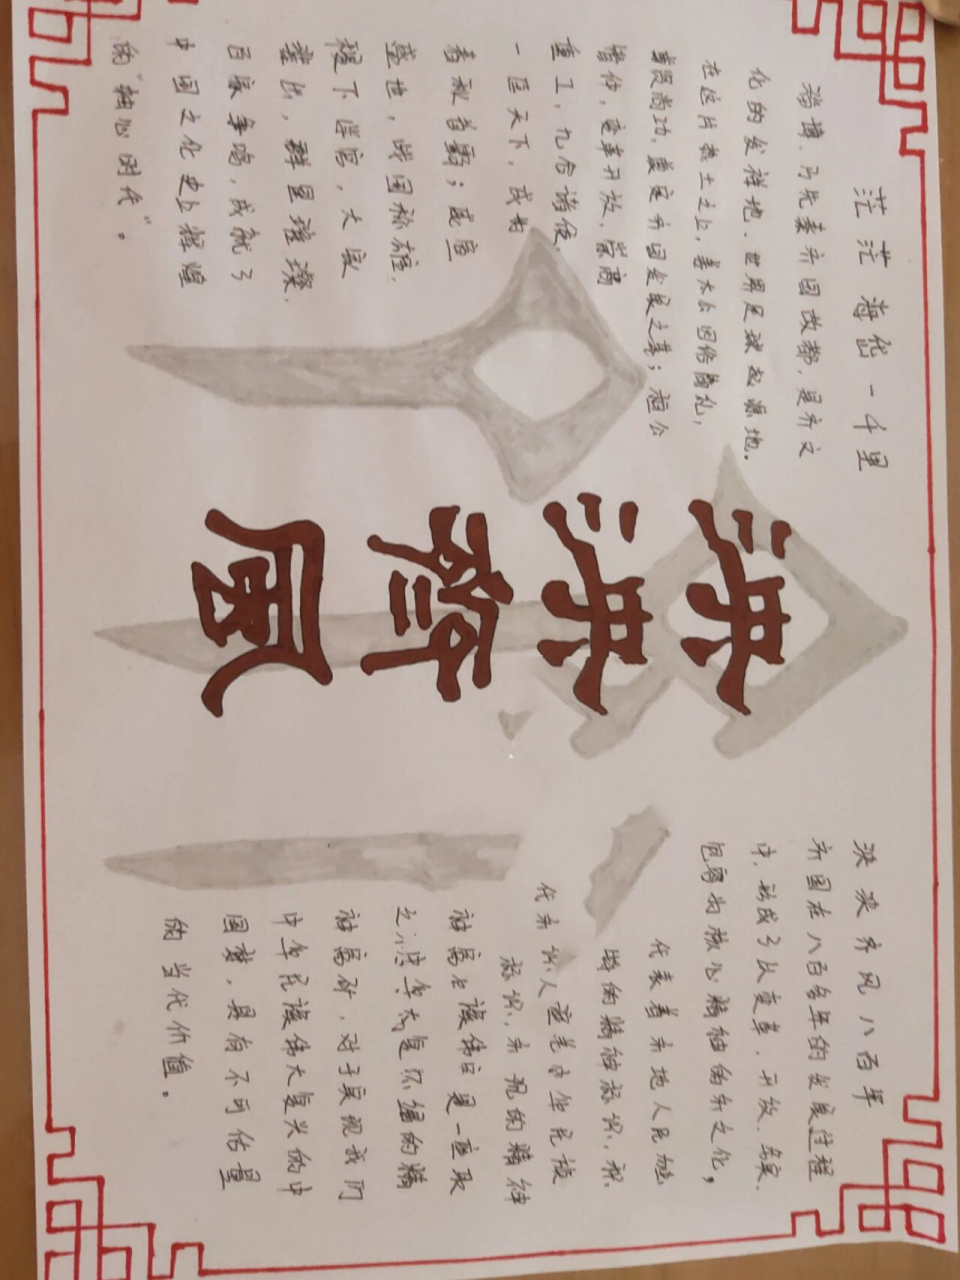 茫茫海岱一千里
淄博,乃先秦齐国故都,是齐文
化的发祥地、世界足球起源地。
在这片热土之上,姜太公因俗简礼,
尊贤尚功,奠定齐国发展之基;桓公
管仲,变革开放,崇商
重工,九合诸侯
一匡天下,成为
春秋首霸;威宣
盛世,战国称雄,
稷下学宫,大家
辈出,群星璀璨,
百家争鸣,成就了
中国文化史上辉煌
的"轴心时代"。
泱泱齊風
泱泱齐风八百年
齐国在八百多年的发展过程
中,形成了以变革、开放、务实、
包容为核心精神的齐文化,
代表着齐地人民独
特的精神标识,积
这是中华民族
标识,的精神
是一座取
之的精
神富矿,对于实现我们
中华民族伟大复兴的中
国梦,具有不可估量
的当代价值。